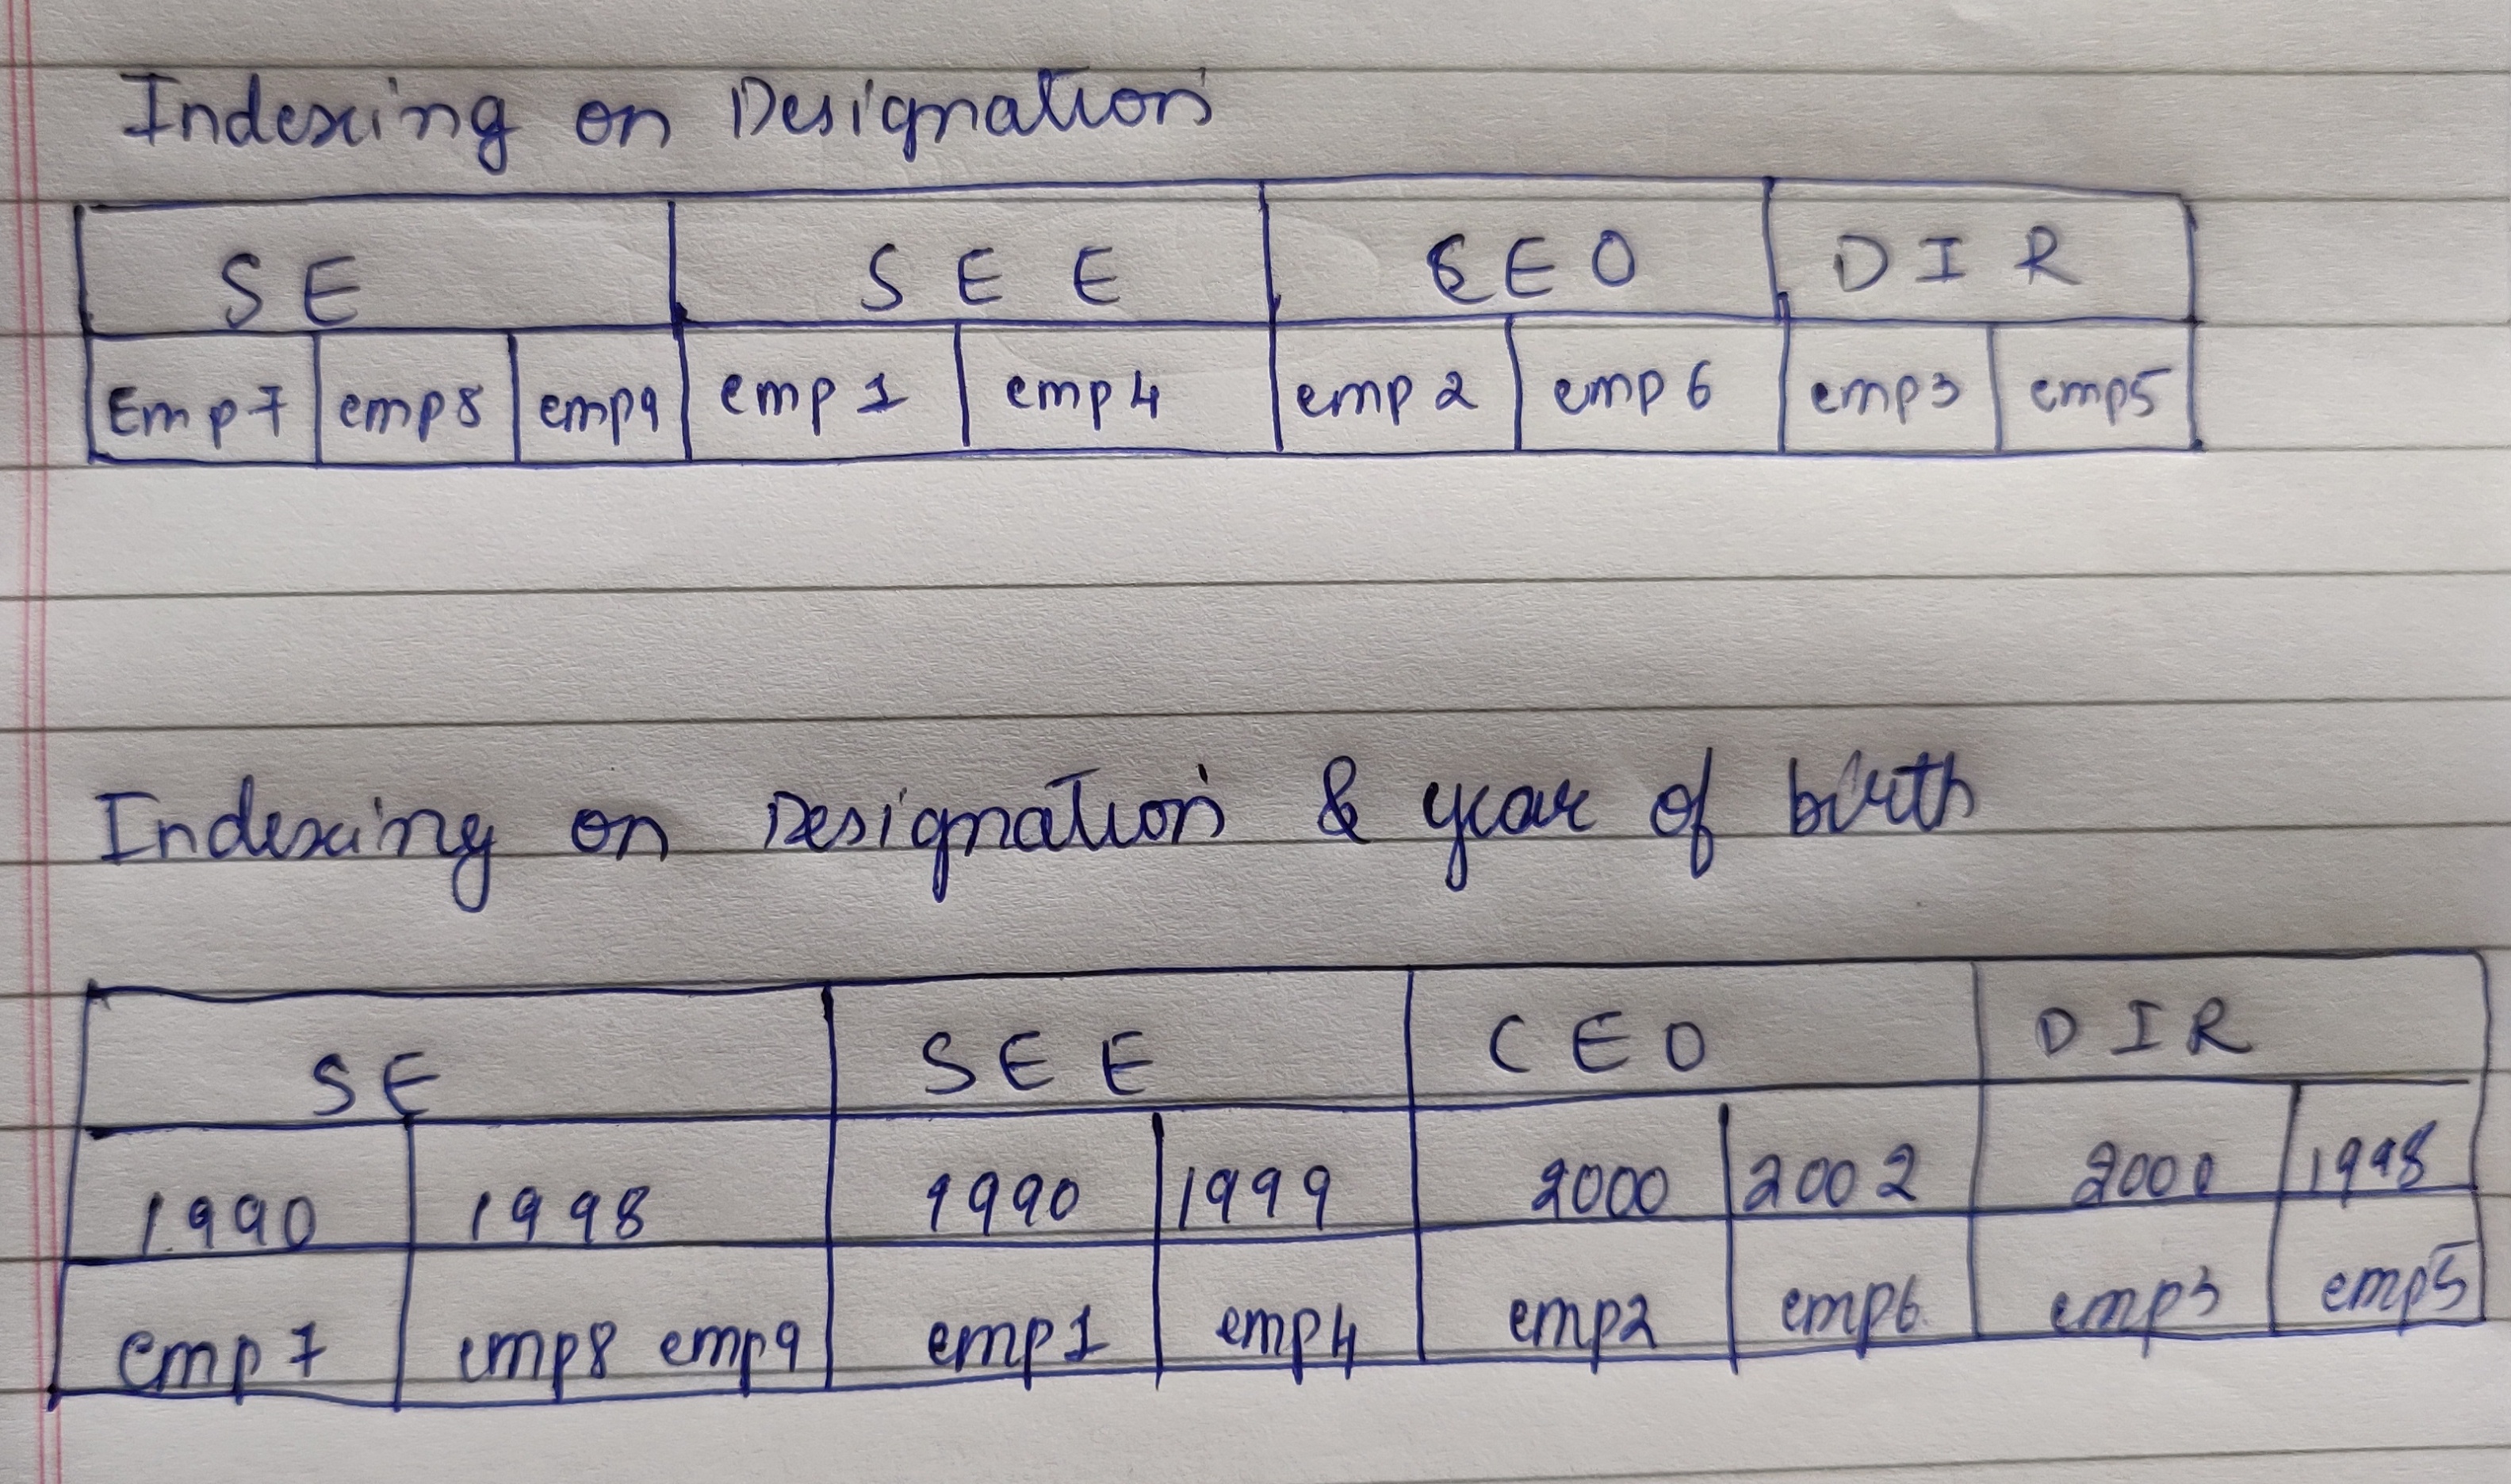 Indexing on Designation
SE SEE CEO DIR
Emp7 emp8 emp9 emp1 emp4 emp2 emp6 emp3 emp5
Indexing on Designation & year of birth
SE SEE CEO DIR
1990 1998 1990 1999 2000 2002 2000 1998
emp7 emp8 emp9 emp1 emp4 emp2 emp6 emp3 emp5